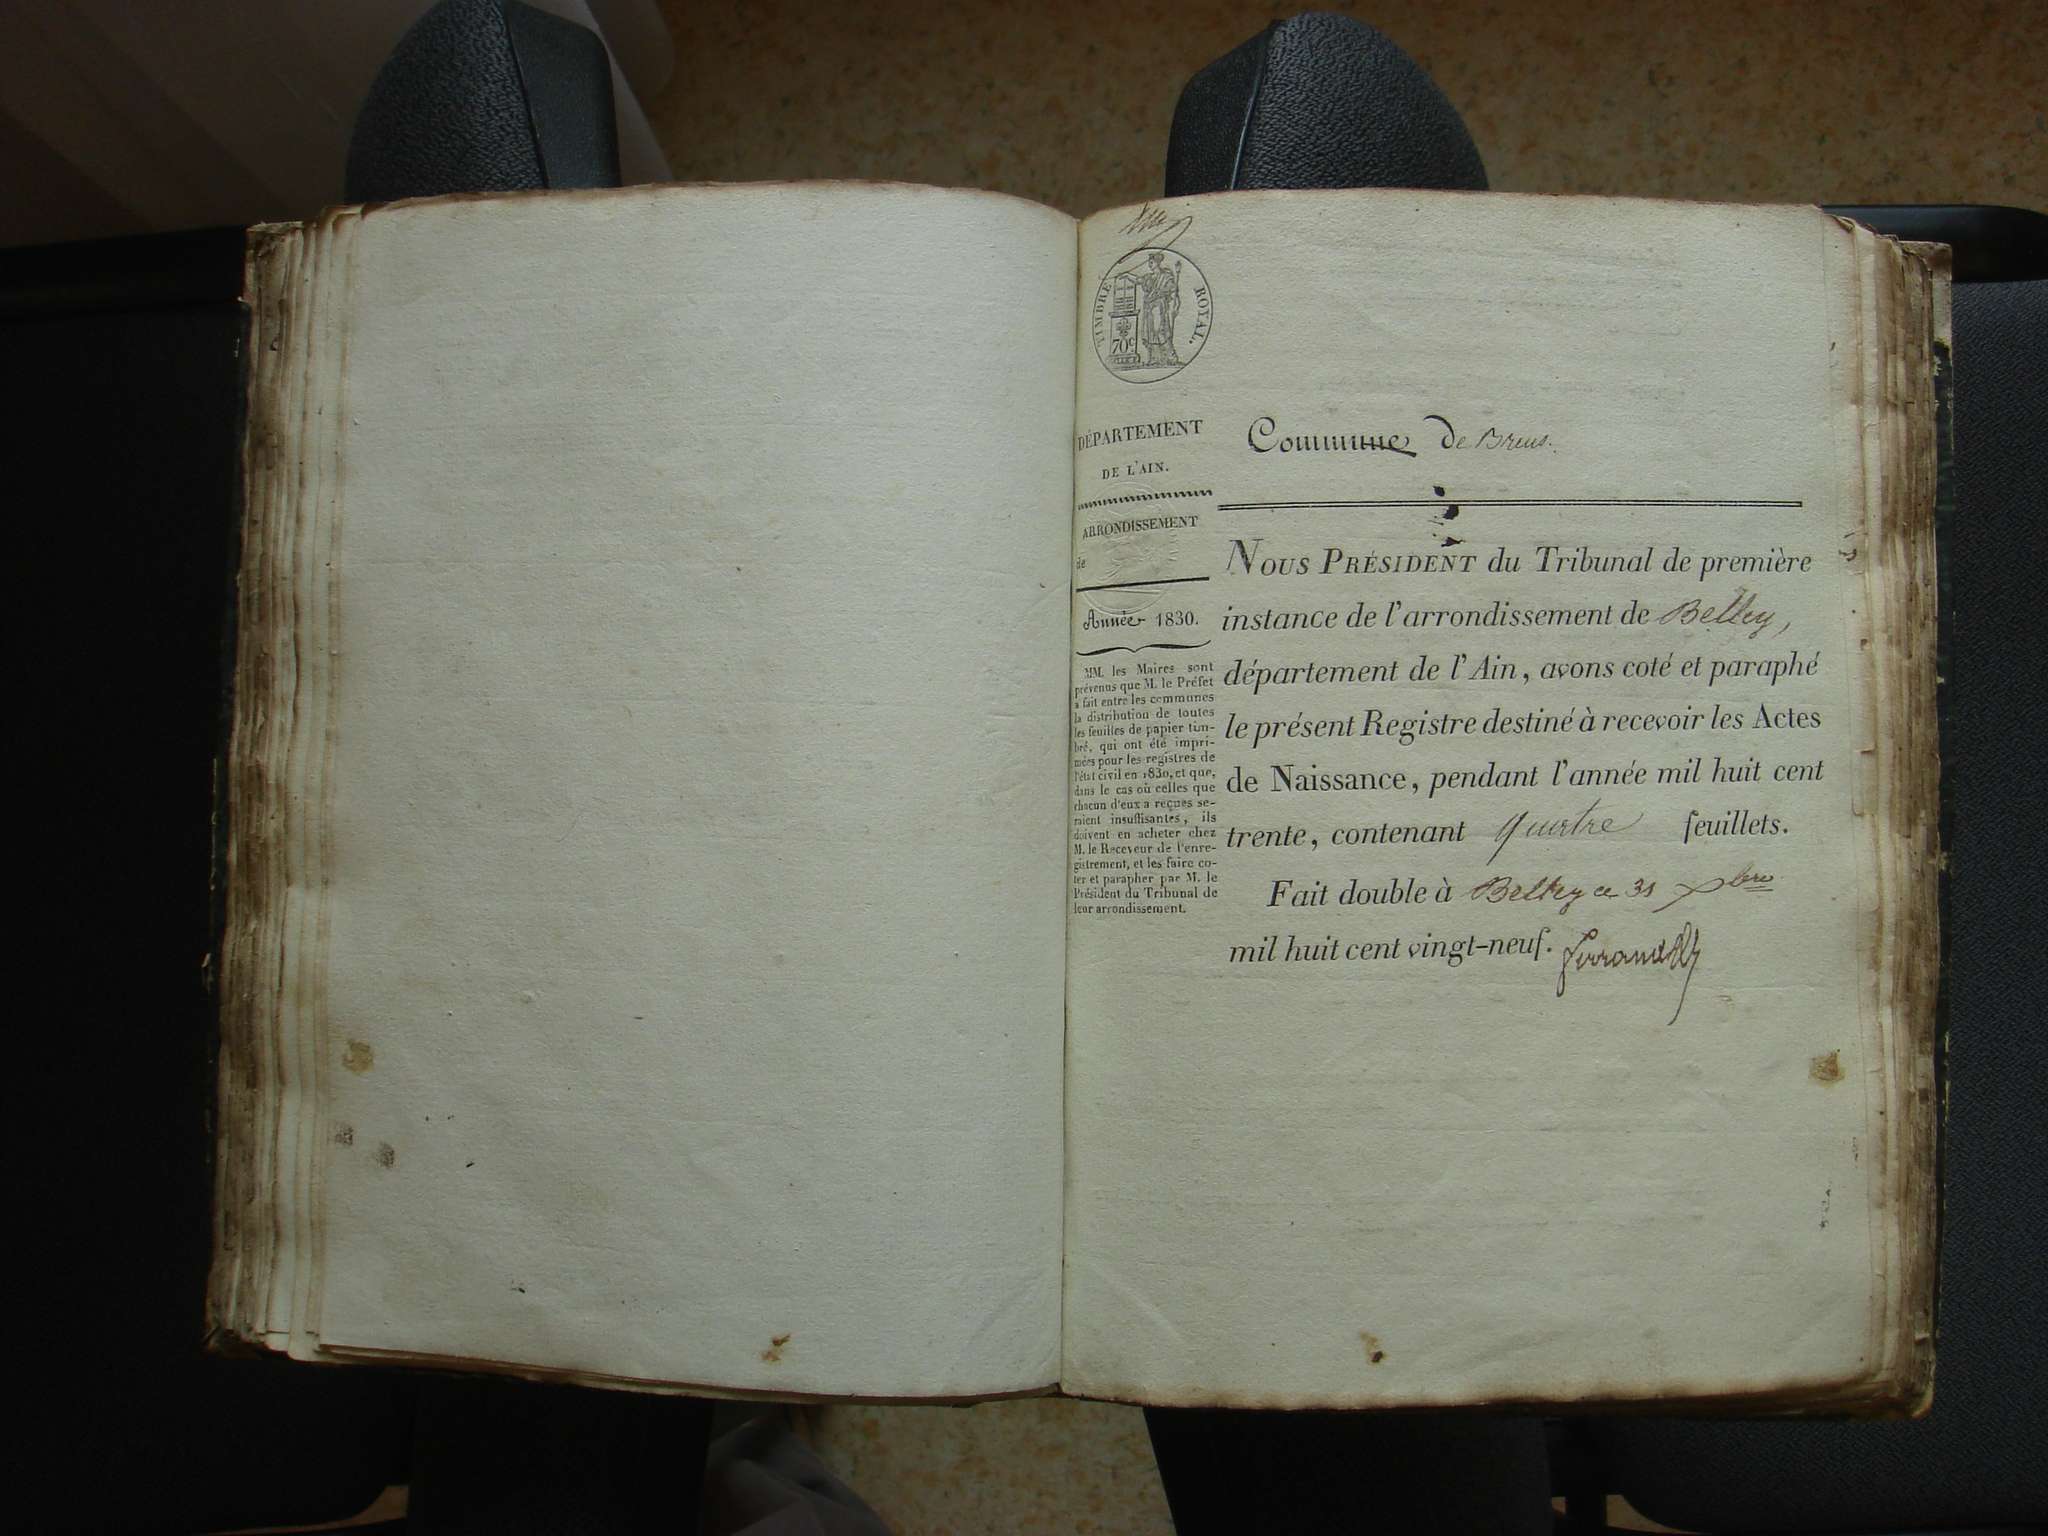 TIMBRE ROYAL.
70c
DÉPARTEMENT
DE L'AIN.
ARRONDISSEMENT
de
Année 1830.
MM. les Maires sont
prévenus que M. le Préfet
a fait entre les communes
la distribution de toutes
les feuilles de papier tim-
bré, qui ont été impri-
mées pour les registres de
l'état civil en 1830, et que,
dans le cas où celles que
chacun d'eux a reçues se-
raient insuffisantes, ils
doivent en acheter chez
M. le Receveur de l'enre-
gistrement, et les faire co-
ter et parapher par M. le
Président du Tribunal de
leur arrondissement.
Commune de Brens.
NOUS PRÉSIDENT du Tribunal de première
instance de l'arrondissement de Belley,
département de l'Ain, avons coté et paraphé
le présent Registre destiné à recevoir les Actes
de Naissance, pendant l'année mil huit cent
trente, contenant quatre feuillets.
Fait double à Belley ce 31 xbre
mil huit cent vingt-neuf.